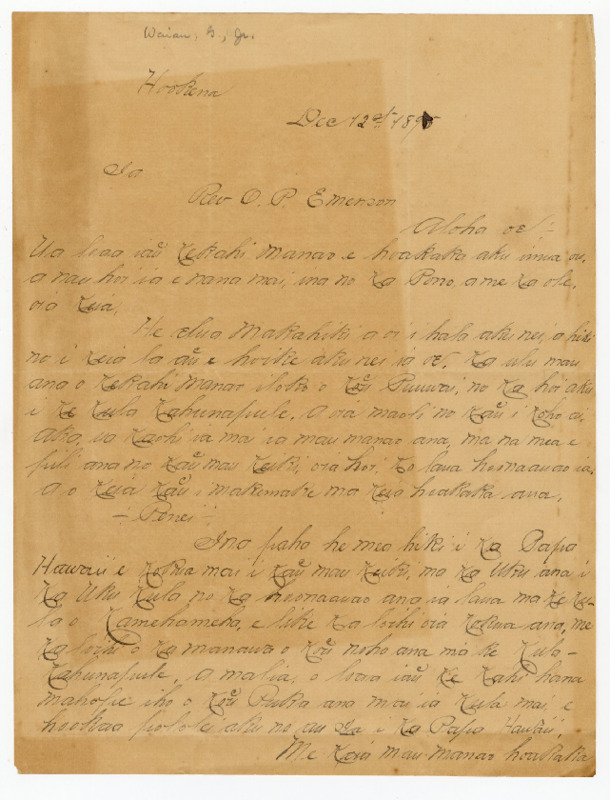 Waiau, G, Jr.
Hookena
Dec 12st 1895
Ia
Rev O. P. Emerson
Aloha oe!-
Ua loaa iaů kekahi manao e hoakaka aku imua ou,
a nau hoi ia e nana mai, ina no ka Pono, a me ka ole,
oia keia,
He elua Makahiki a oi i hala aku nei, a hiki
no i keia la aů e hoike aku nei ia oe, ka ulu mau
ana o kekahi manao iloko o koů Puuwai, no ka hoi aku
i ke kula Kahunapule. A oia maoli no kaů i koho ai,
Aka, ua kaohi ia mai ia mau manao ana, ma na mea e
pili ana no kaů mau keiki, oia hoi, ko laua hoonaauao ia.
A o keia kaů i makemake ma keia hoakaka ana,
- Penei -
Ina paha he mea hiki i ka Papa
Hawaii e kokua mai i kaů mau keiki, ma ka Uku ana i
ka Uku kula no ka hoonaauao ana ia laua ma ke Ku-
la o Kamehameha, e like ka loihi oia kokua ana, me
ka loihi o ka manawa o koů noho ana ma ke Kula-
Kahunapule, A malia, o loaa iaů ke kahi hana
mahope iho o koů Puka ana mai ia Kula mai, e
hookaa pololei aku no au ia i ka Papa Hawaii,
Me keia mau manao hoakaka